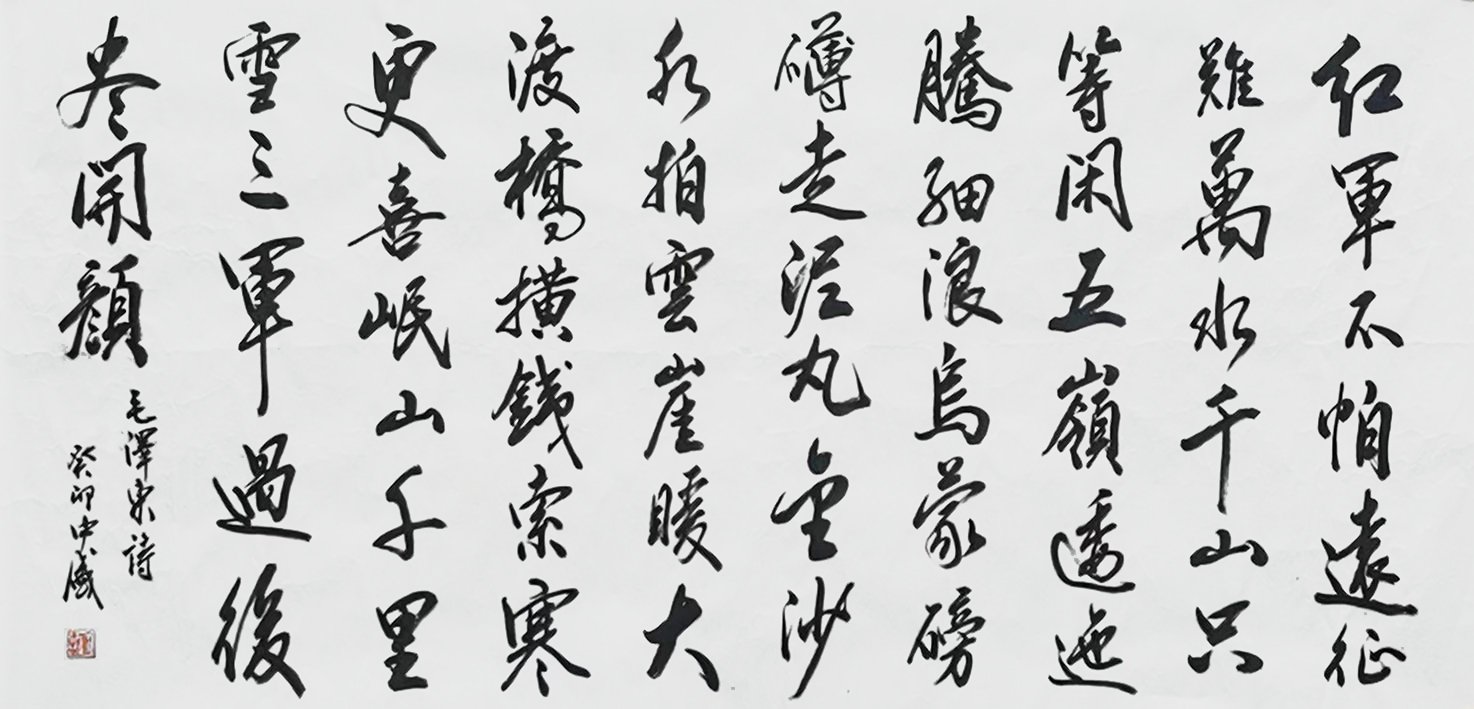 紅軍不怕遠征
難萬水千山只
等閑五嶺逶迤
騰細浪烏蒙磅
礴走泥丸金沙
水拍雲崖暖大
渡橋橫鐵索寒
更喜岷山千里
雪三軍過後
尽開顏
毛澤東詩
癸卯中